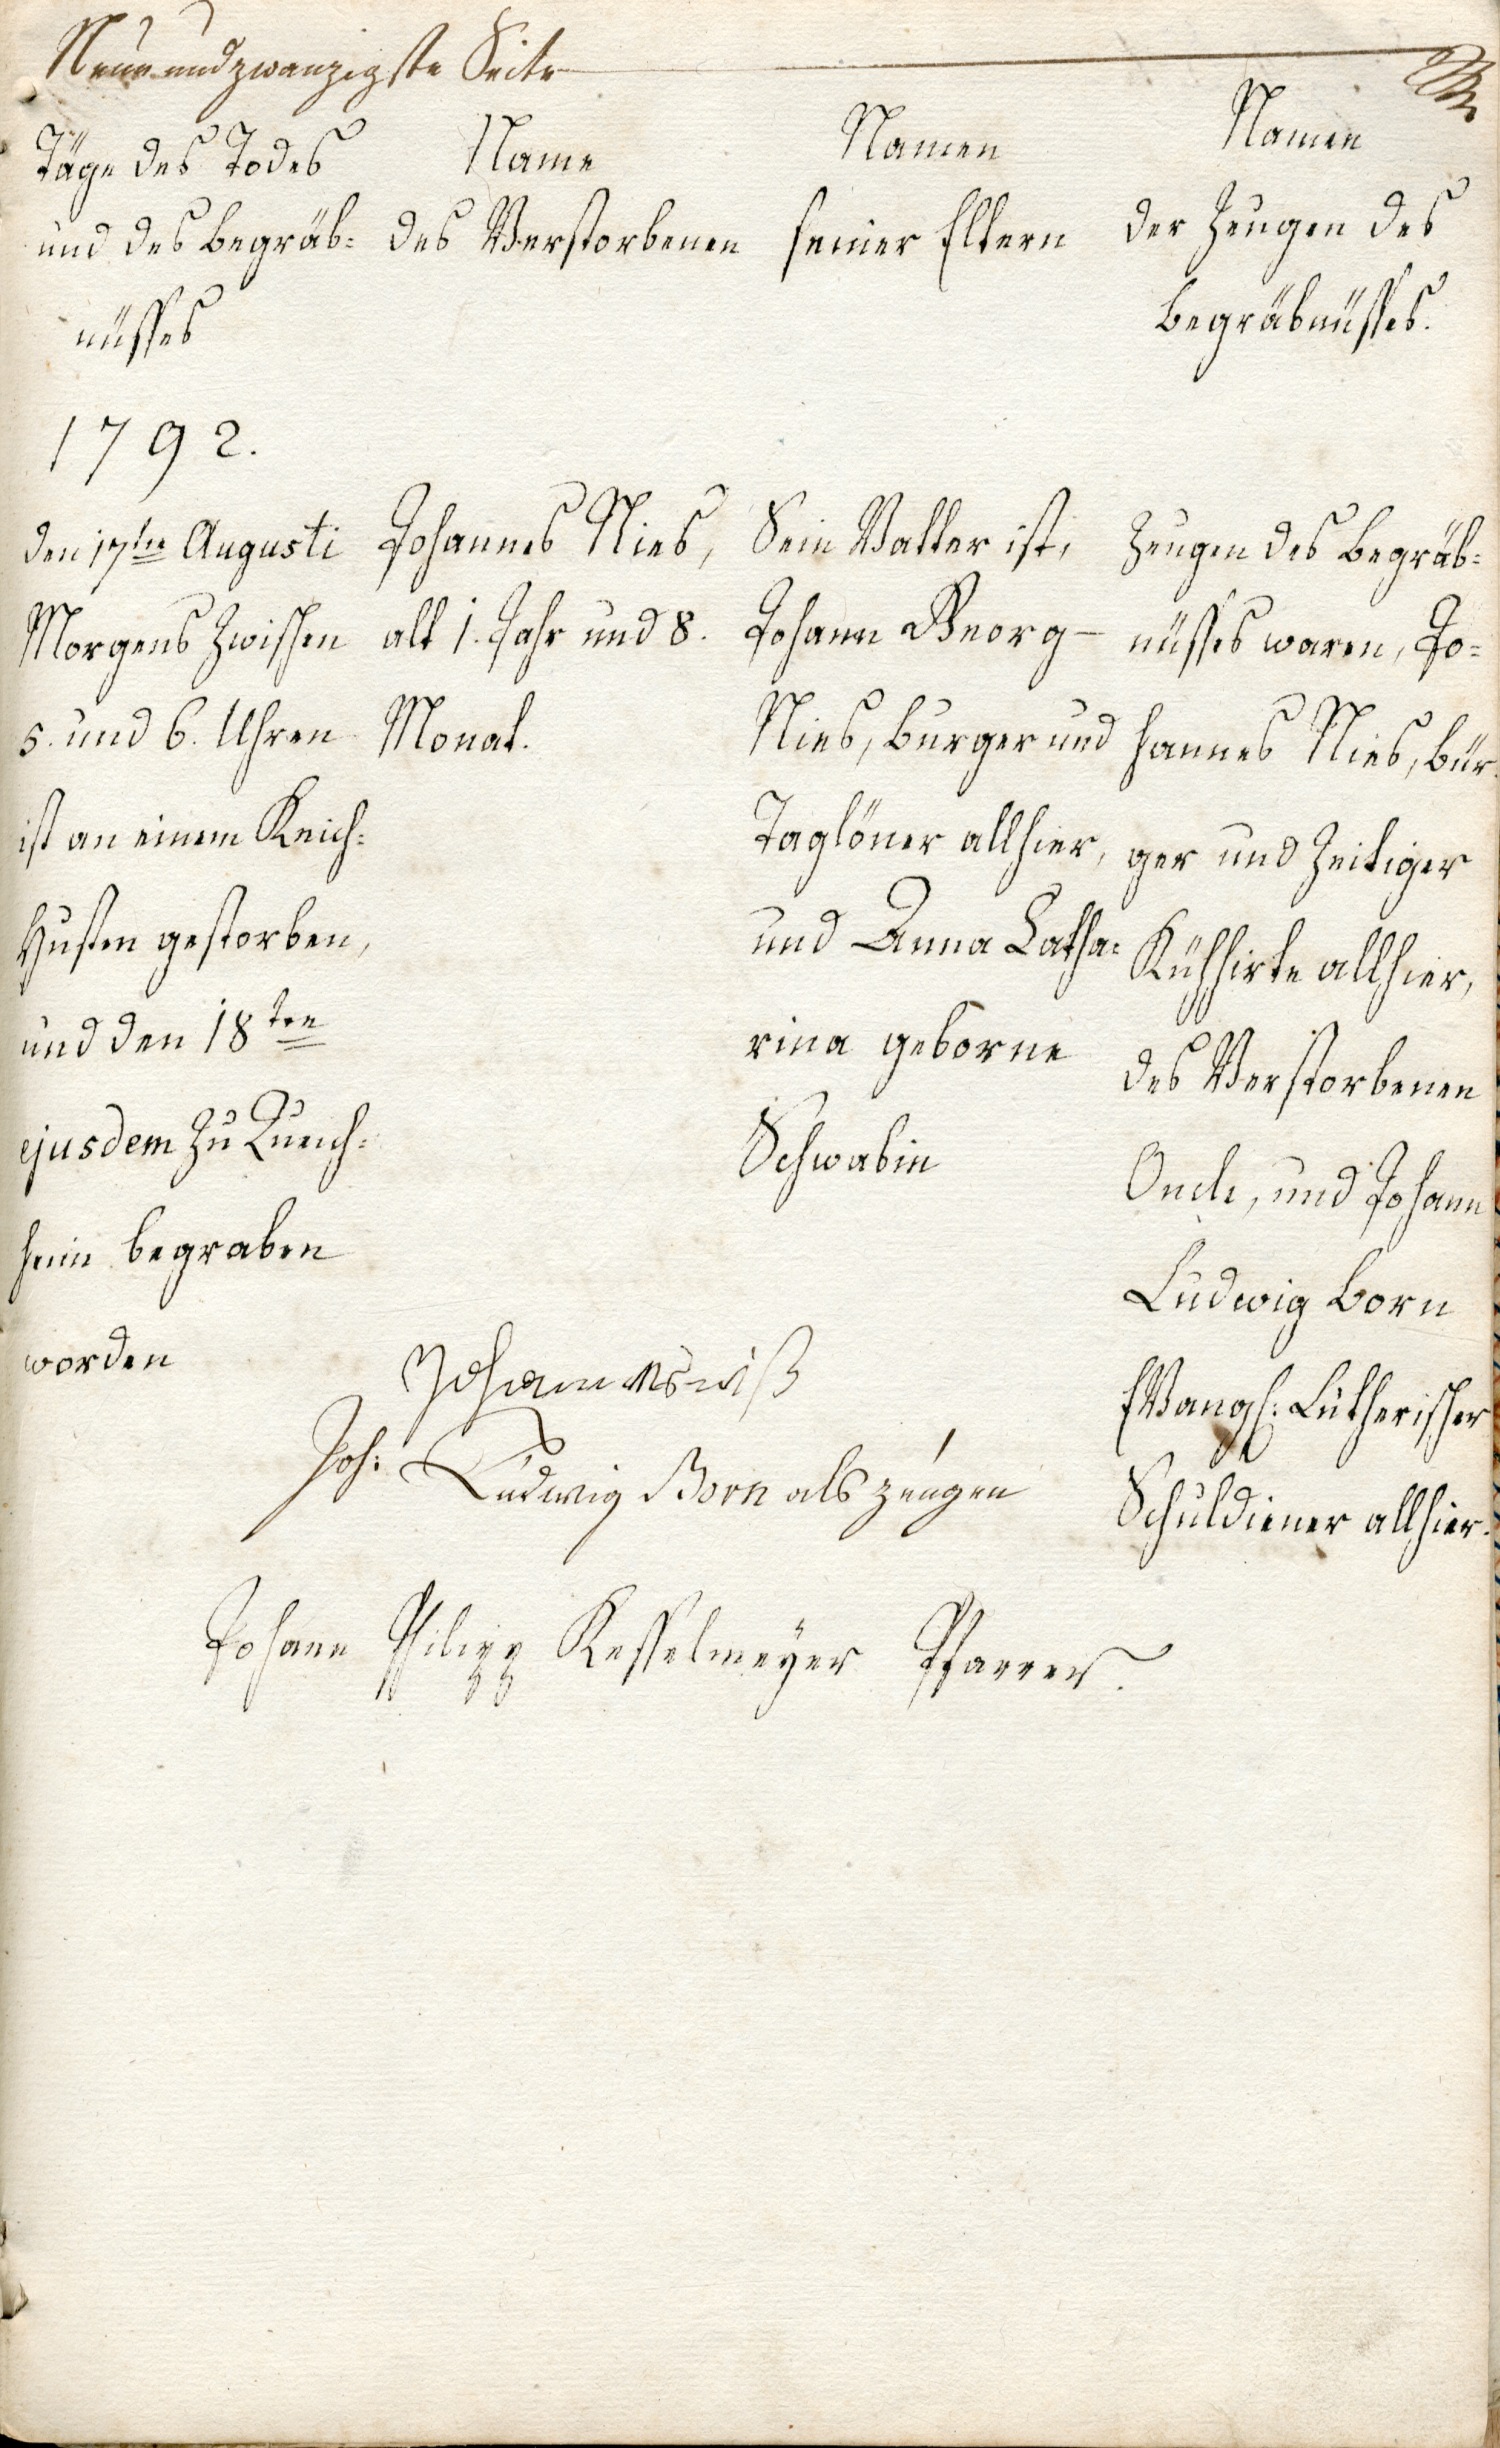 Neun und zwanzigste Seite
Täge des Todes
und des begräb=
nüsses
Name
des Verstorbenen
Namen
seiner Eltern
Namen
der Zeugen des
begräbnüsses.
1792.
den 17ten Augusti
Morgens Zwischen
5. und 6. Uhren
ist an einem Keich=
Husten gestorben,
und den 18ten
ejusdem zu Queich=
heim begraben
worden
Johannes Nies,
alt 1. Jahr und 8.
Monat.
Sein Vatter ist,
Johann Georg
Nies, burger und
Taglöner allhier,
und Anna Catha=
rina geborne
Schwabin
Zeugen des begräb=
nüsses waren, Jo=
hannes Nies, bür
ger und Zeitiger
Kühhirte allhier,
des Verstorbenen
Oncle, und Johann
Ludwig born
EVangl: Lutherischer
Schuldiener allhier.
Johannes niß
Joh: Ludwig Born als zeugen
Johann Philipp Kesselmeÿer Pfarrer.